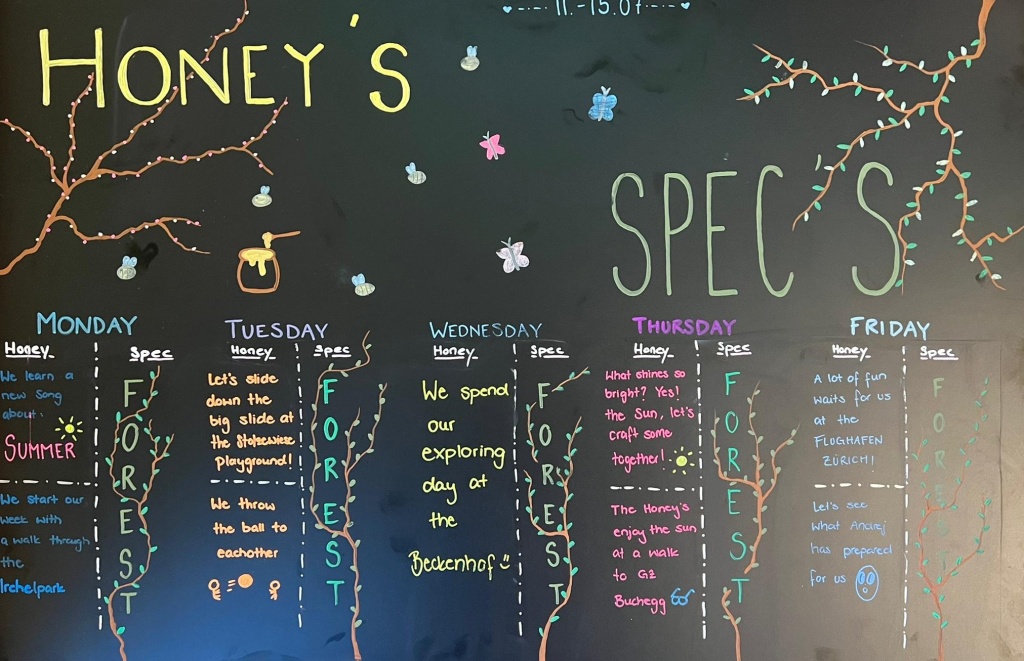 11.-15.07
HONEY'S
SPEC'S
MONDAY
Honey
Spec
We learn a
new song
about:
SUMMER
We start our
week with
a walk through
the
Irchelpark
FOREST
TUESDAY
Honey
Spec
Let's slide
down the
big slide at
the Stolzewiese
Playground!
We throw
the ball to
eachother
FOREST
WEDNESDAY
Honey
Spec
We spend
our
exploring
day at
the
Beckenhof
FOREST
THURSDAY
Honey
Spec
What shines so
bright? Yes!
the Sun, let's
craft some
together!
The Honey's
enjoy the sun
at a walk
to GZ
Buchegg
FOREST
FRIDAY
Honey
Spec
A lot of fun
waits for us
at the
FLUGHAFEN
ZÜRICH!
Let's see
what Andrej
has prepared
for us
FOREST